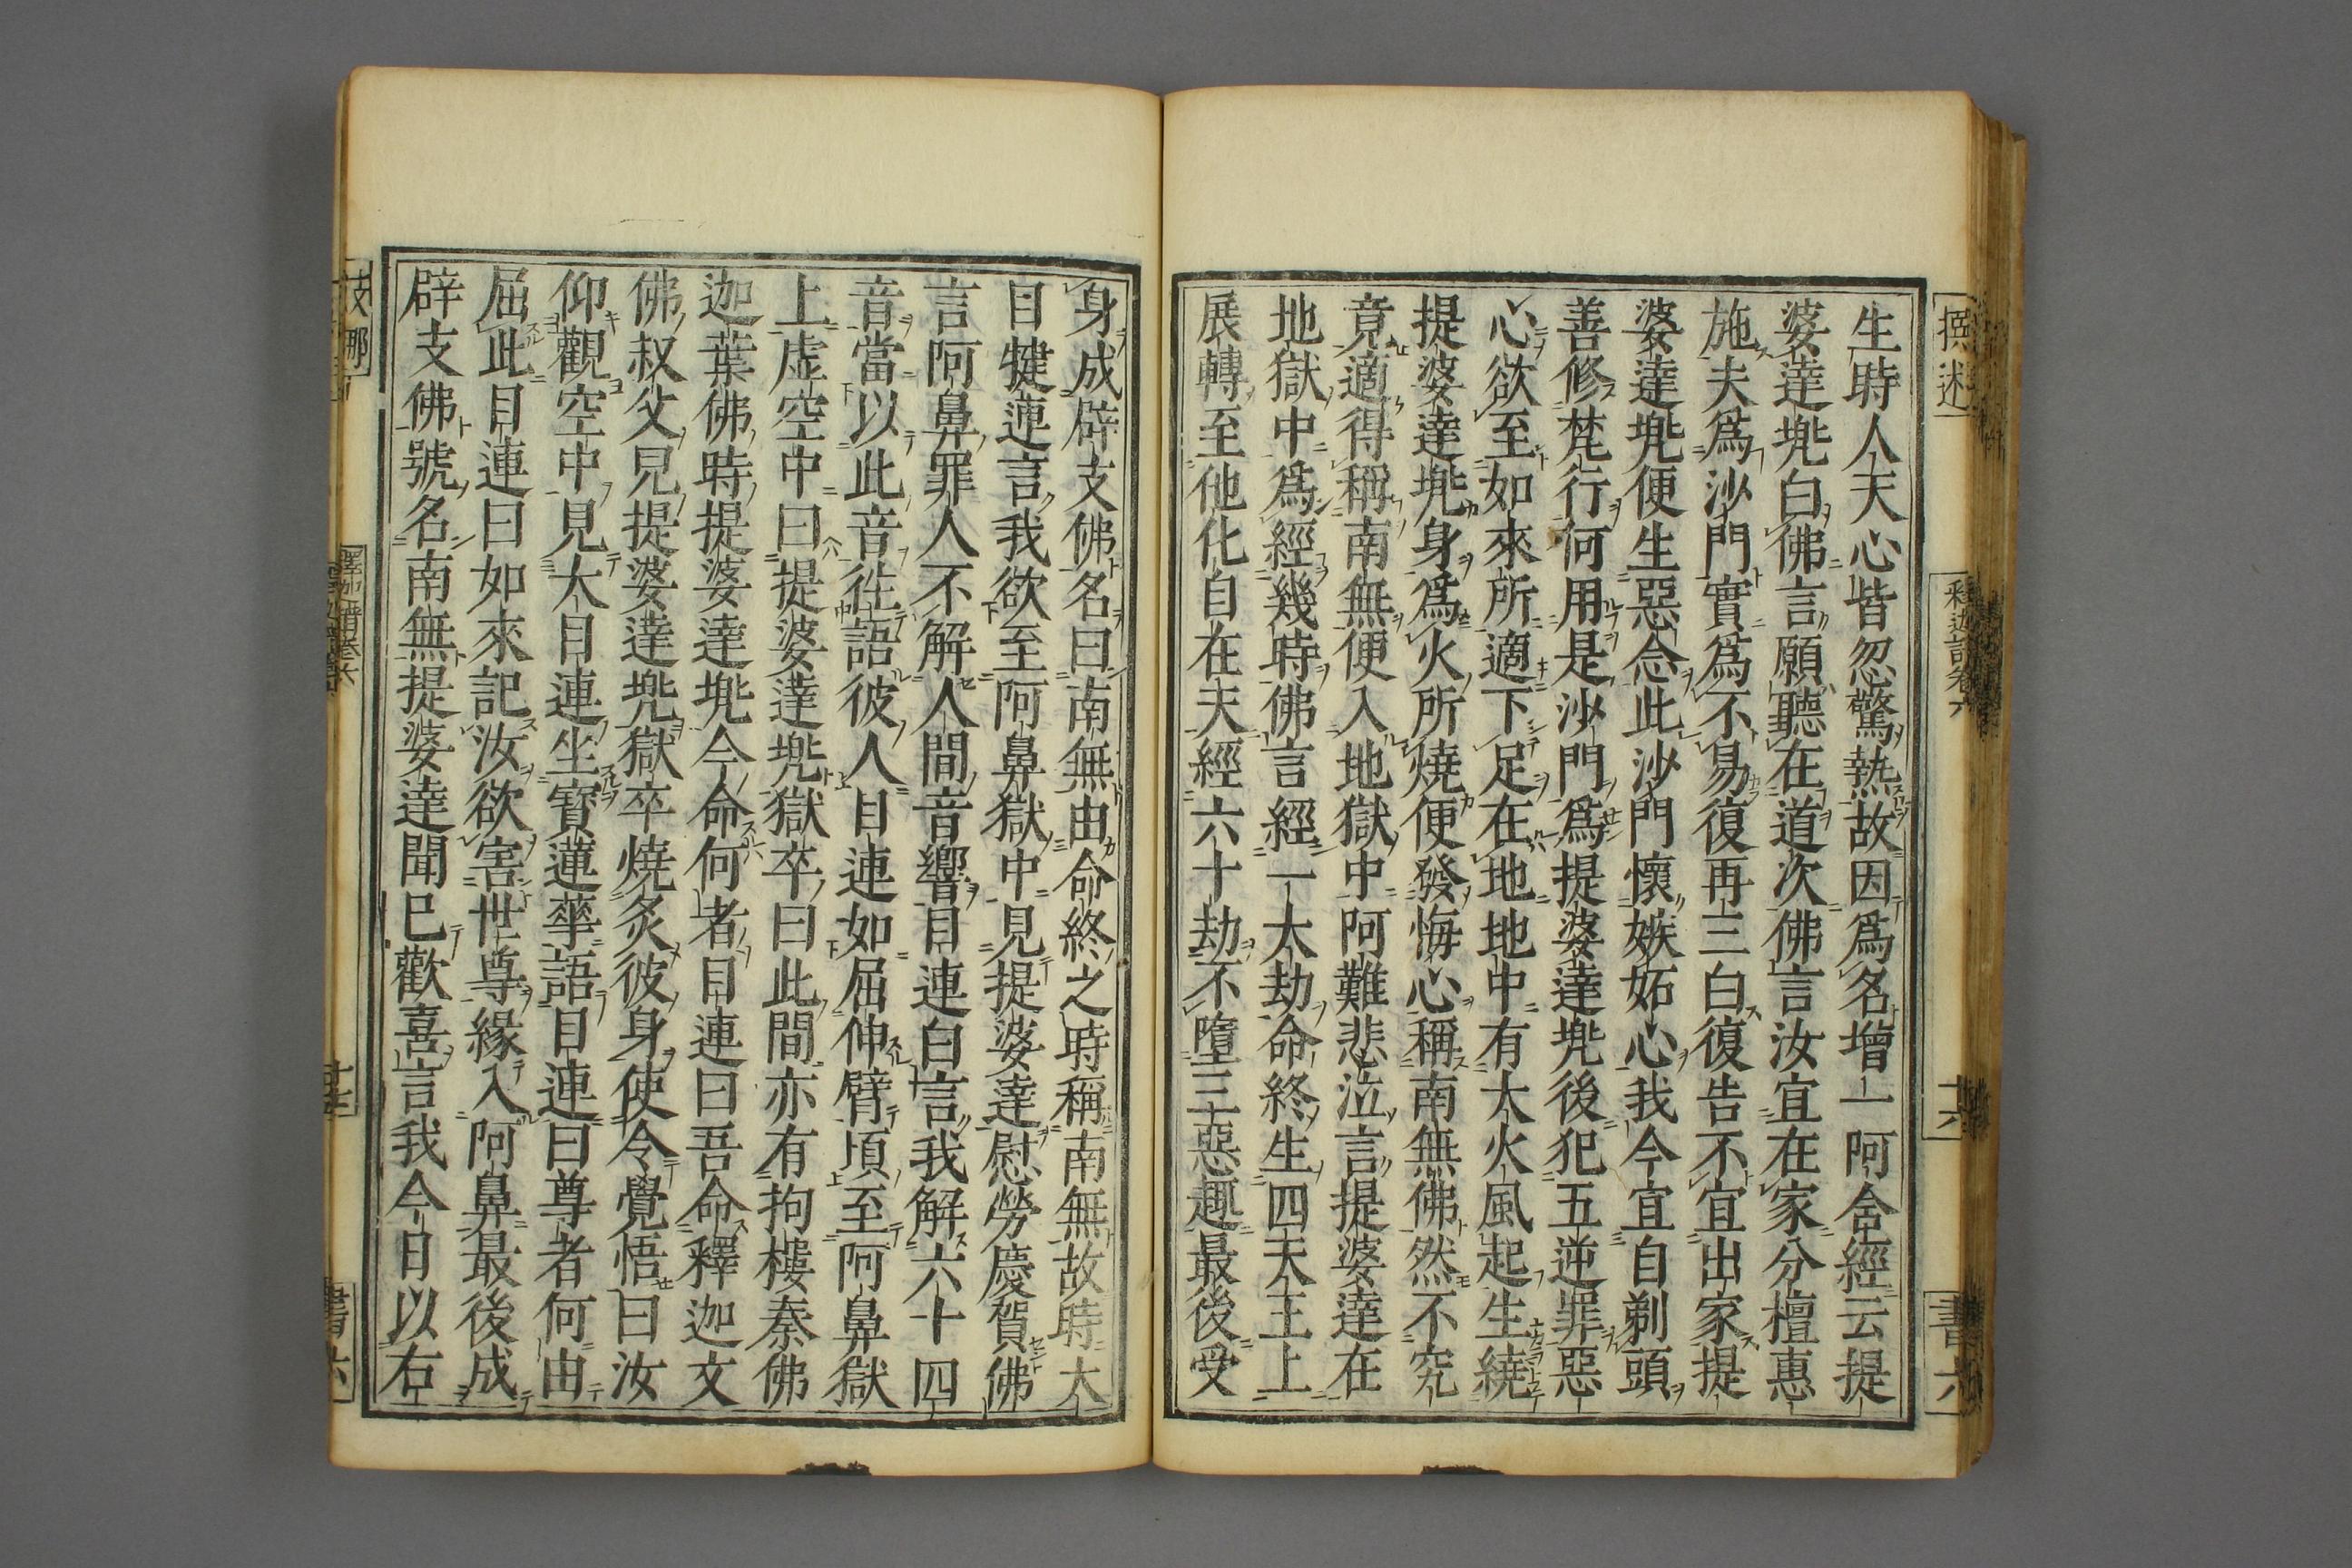 生時人天心皆忽驚熱故因爲名增一阿舍經云提
婆達兜白佛言願聽在道次佛言汝宜在家分檀惠
施夫爲沙門實爲不易復再三白復告不宜出家提
婆達兜便生惡念此沙門懷嫉妬心我今宜自剃頭
善修梵行何用是沙門爲提婆達兜後犯五逆罪惡
心欲至如來所適下足在地地中有大火風起生繞
提婆達兜身爲火所燒便發悔心稱南無佛然不究
竟適得稱南無便入地獄中阿難悲泣言提婆達在
地獄中爲經幾時佛言經一大劫命終生四天王上
展轉至他化自在天經六十劫不墮三惡趣最後受
身成辟支佛名曰南無由命終之時稱南無故時大
目犍連言我欲至阿鼻獄中見提婆達慰勞慶賀佛
言阿鼻罪人不解人間音響目連白言我解六十四
音當以此音往語彼人目連如屈伸臂頃至阿鼻獄
上虛空中曰提婆達兜獄卒曰此間亦有拘樓秦佛
迦葉佛時提婆達兜今命何者目連曰吾命釋迦文
佛叔父兒提婆達兜獄卒燒炙彼身使令覺悟曰汝
仰觀空中見大目連坐寶蓮華語目連曰尊者何由
屈此目連曰如來記汝欲害世尊緣入阿鼻最後成
辟支佛號名南無提婆達聞已歡喜言我今日以右
釋迦譜卷六
十六